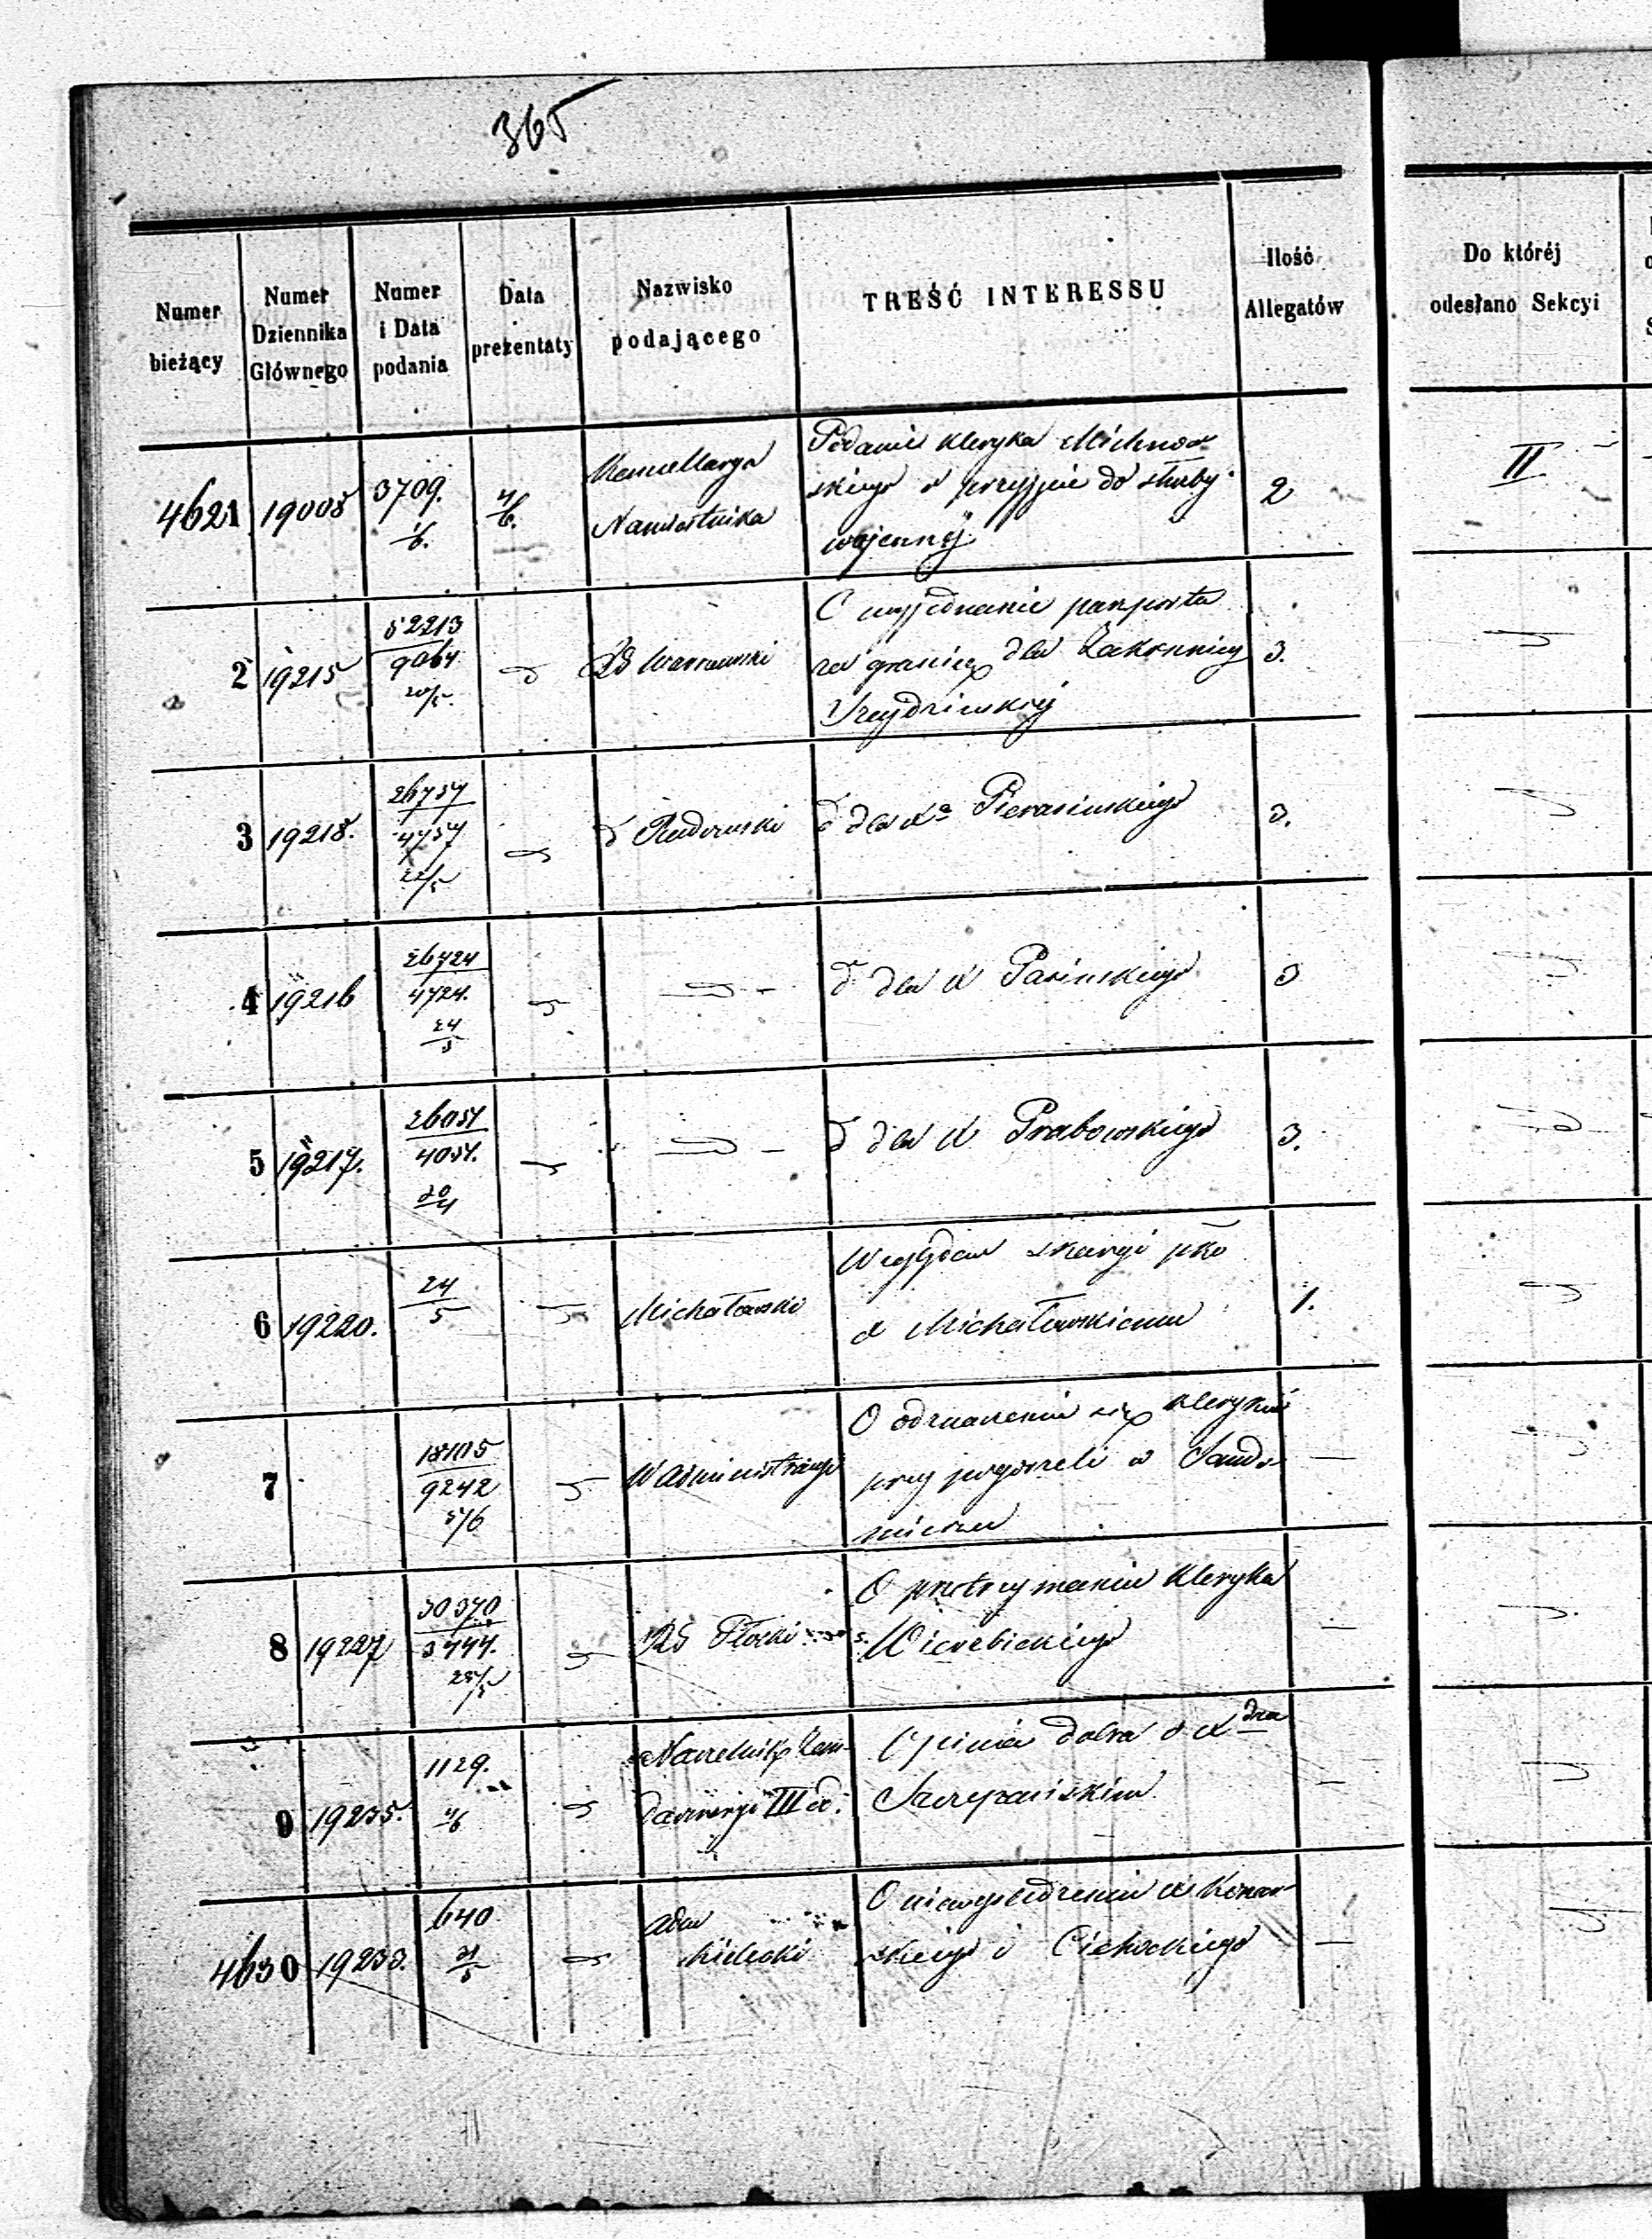 365
Numer bieżący
Numer Dziennika Głównego
Numer i Data podania
Data prezentaty
Nazwisko podającego
TREŚĆ INTERESSU
Ilość Allegatów
Do któréj odesłano Sekcyi
4621 19008 3709. Kancellarya Namiestnika
Podanie kleryka Michnow
skiego o przyjęcie do służby
wojennej
2
II
2 19215 52213 9064 20/5 RG Warszawski
O wyjednanie paszportu
za granicę dla Zakonnicy
3.
3 19218. 26757 4757 22/5 d Radomski
d dla X Pierasinskiego
3.
4 19216 26724 4724. 24/5
d dla X Pasinskiego
3
5 19217. 26051 4051.
d dla X Grabowskiego
3.
6 19220. 24/5 Michałowski
Względem skargi pko
X Michałowskiemu
1.
7 18105 9242 W Administracyi
O odznaczeniu się kleryków
przy pogorzeli w Sando
mierzu
8 19227 30370 3744. RG Płocki
O przetrzymaniu kleryka
Wierzbickiego
9 19235. 1129. 4/6 Naczelnik Żan
darmeryi III o.
Opinia dobra o X
Szczepańskim
4630 19233. 640 Adm
Kielecki
O niewysledzeniu X Konar
skiego i Cichockiego